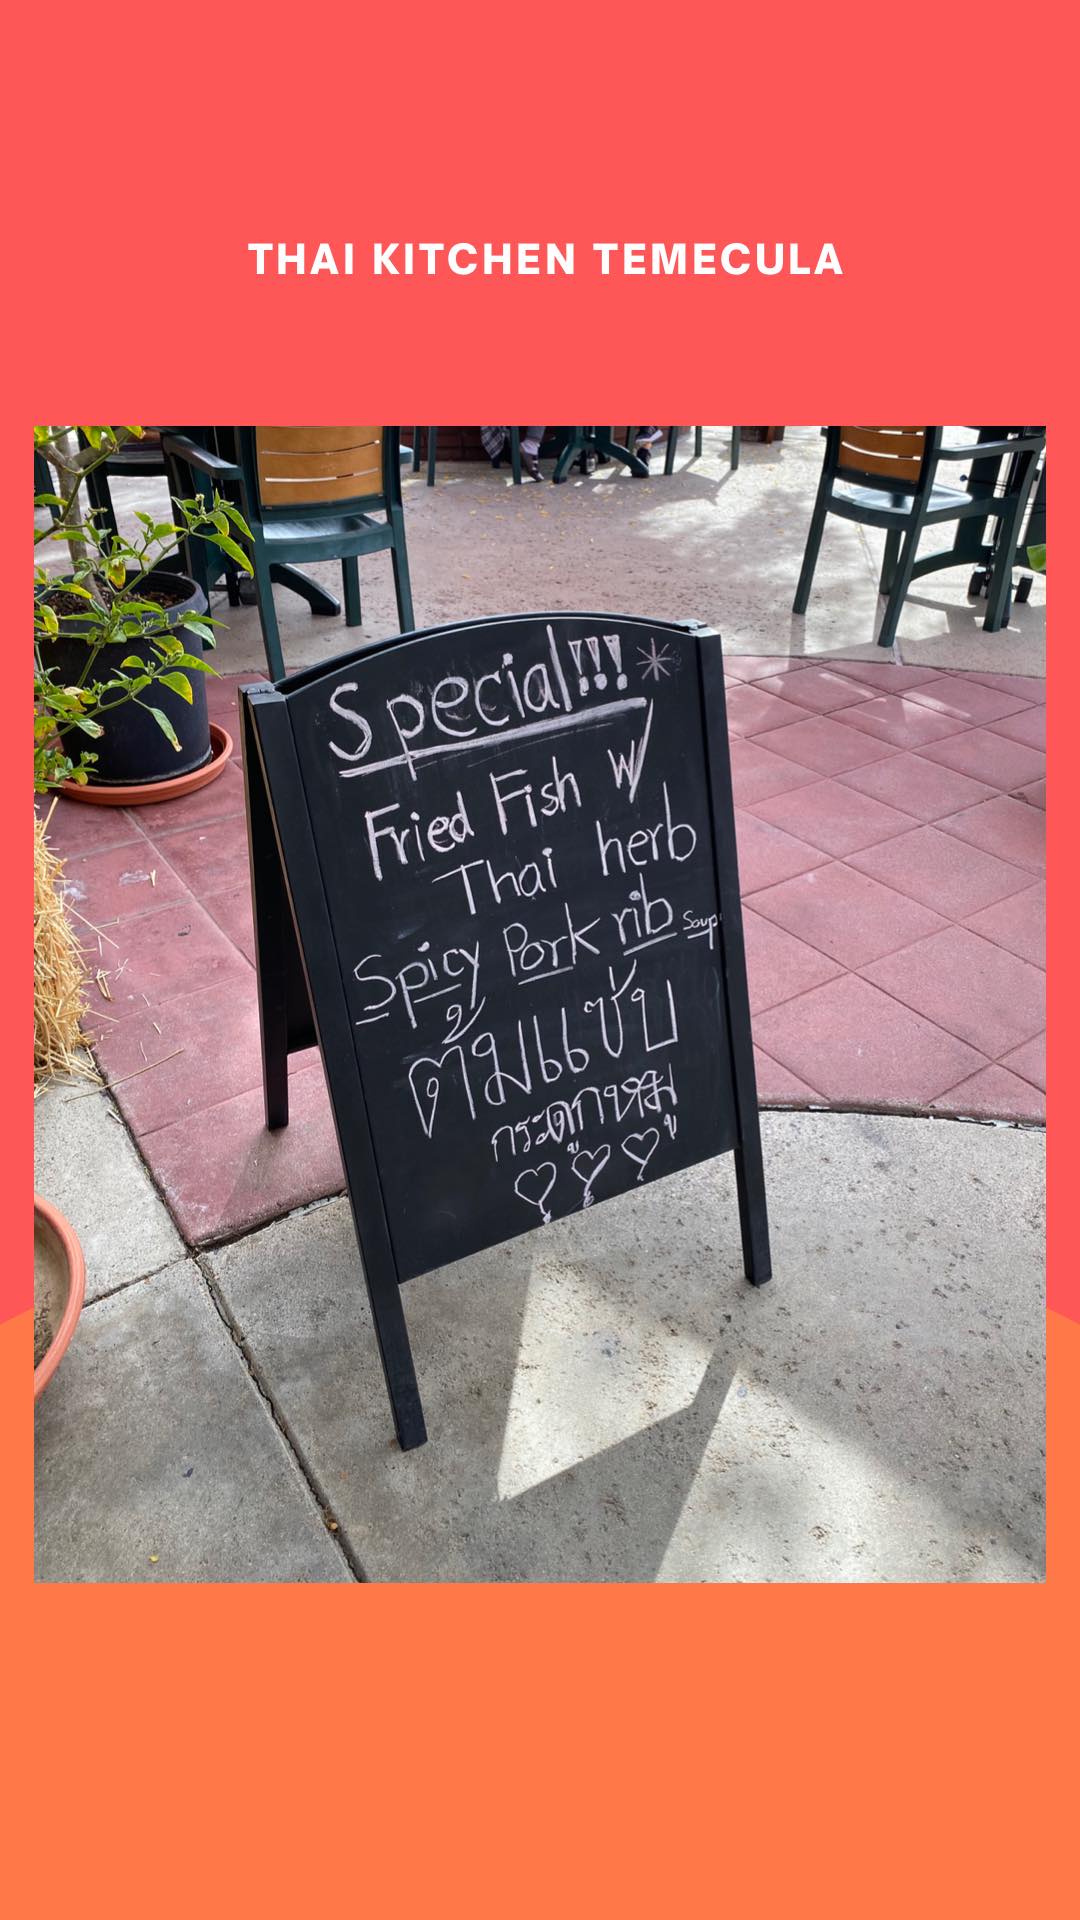 THAI KITCHEN TEMECULA
Special!!! *
Fried Fish w/
Thai herb
Spicy Pork rib Soup
ต้มแซ่บ
กระดูกหมู